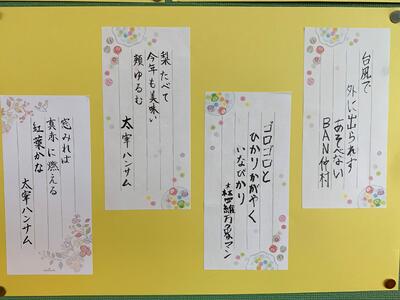 台風で
外に出られず
あそべない
BAN仲村
ゴロゴロと
ひかりかがやく
いなびかり
森羅万象マン
梨たべて
今年も美味い
頬ゆるむ
太宰ハンサム
窓みれば
真赤に燃える
紅葉かな
太宰ハンサム